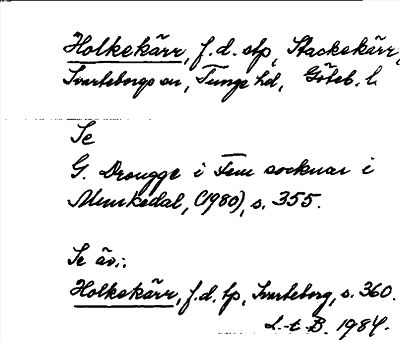 Holkekärr, f.d. stp, Stackekärr,
Svarteborgs sn, Tunge hd, Göteb. l.
Se
G. Drougge i Fem socknar i
Munkedal, (1980), s. 355.
Se äv.:
Holkekärr, f.d. tp, Svarteborg, s. 360.
L-t B. 1984.